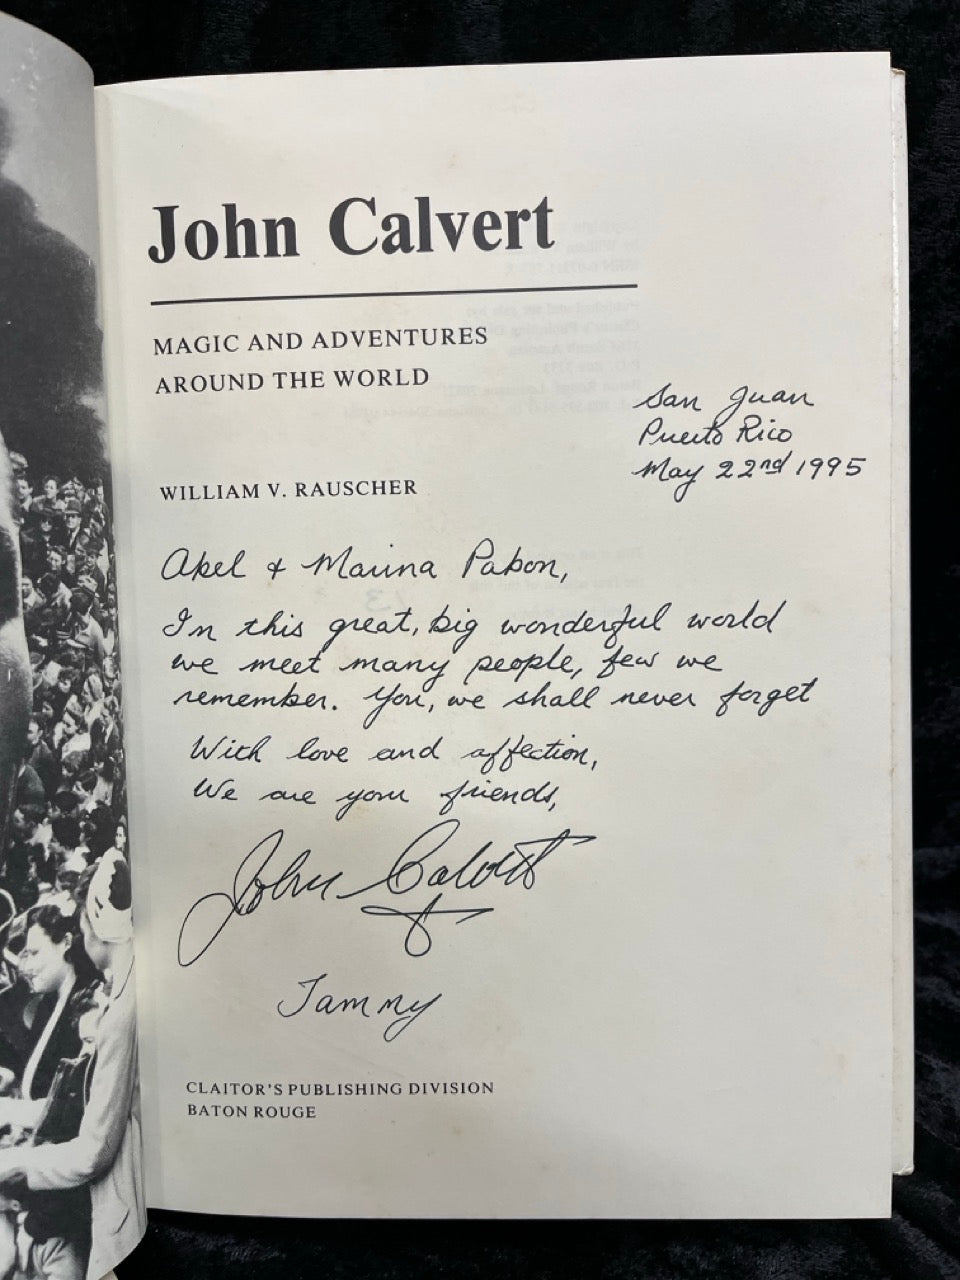 John Calvert
MAGIC AND ADVENTURES
AROUND THE WORLD
San Juan
Puerto Rico
May 22nd 1995
WILLIAM V. RAUSCHER
Abel & Marina Pabon,
In this great, big wonderful world
we meet many people, few we
remember. You, we shall never forget
With love and affection,
We are your friends,
John Calvert
Tammy
CLAITOR'S PUBLISHING DIVISION
BATON ROUGE